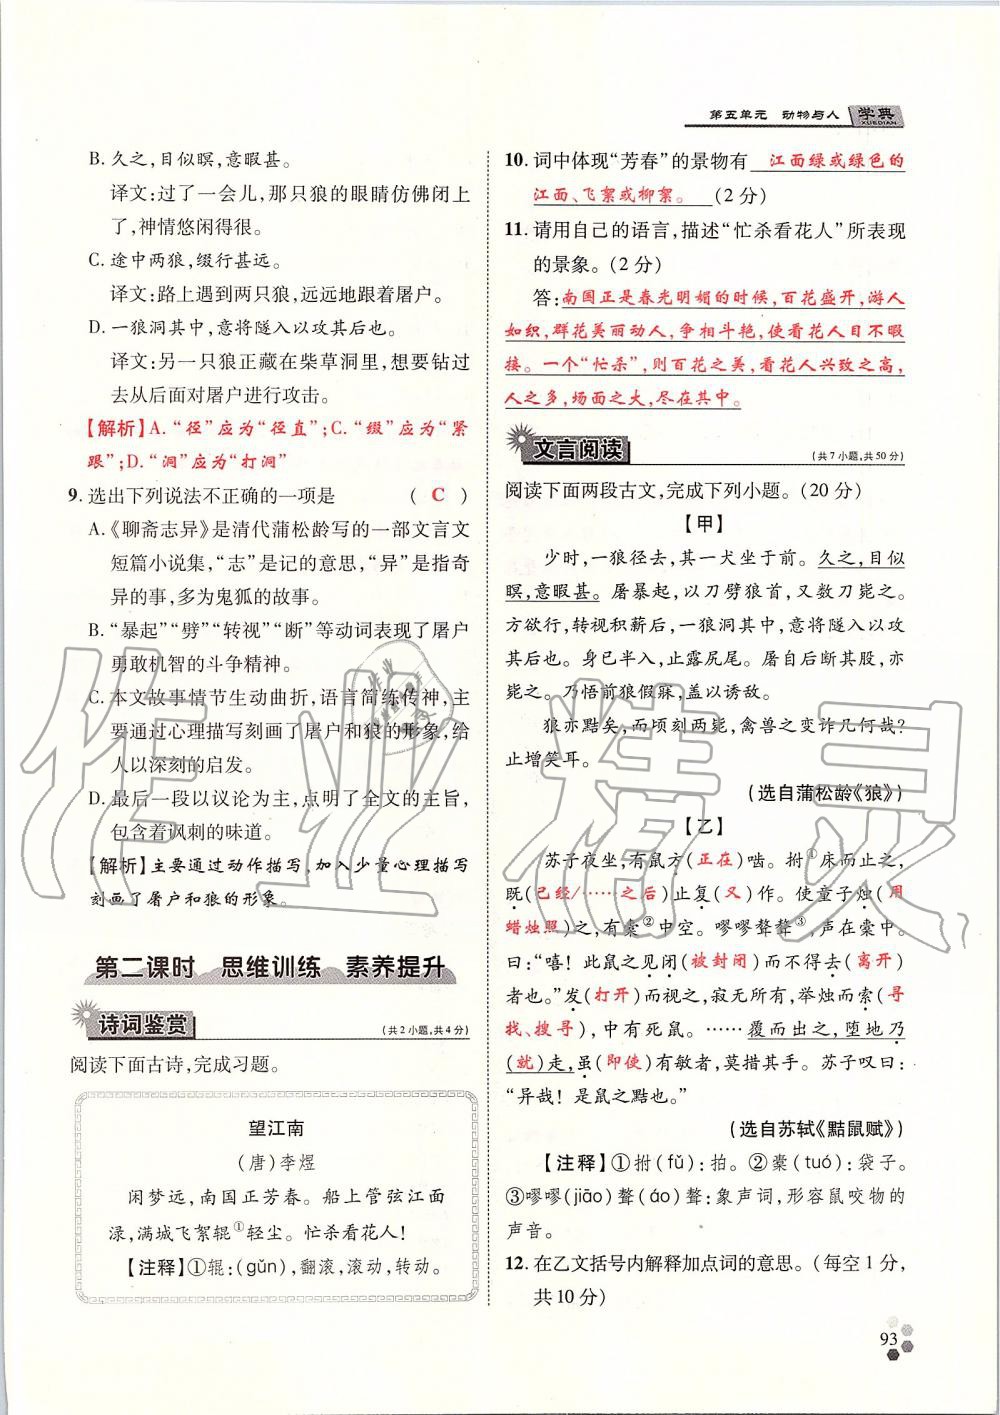 第五单元　动物与人　学典
XUEDIAN
B. 久之,目似瞑,意暇甚。
译文:过了一会儿,那只狼的眼睛仿佛闭上
了,神情悠闲得很。
C. 途中两狼,缀行甚远。
译文:路上遇到两只狼,远远地跟着屠户。
D. 一狼洞其中,意将隧入以攻其后也。
译文:另一只狼正藏在柴草洞里,想要钻过
去从后面对屠户进行攻击。
【解析】A.“径”应为“径直”;C.“缀”应为“紧
跟”;D.“洞”应为“打洞”
9. 选出下列说法不正确的一项是　　( C )
A.《聊斋志异》是清代蒲松龄写的一部文言文
短篇小说集,“志”是记的意思,“异”是指奇
异的事,多为鬼狐的故事。
B.“暴起”“劈”“转视”“断”等动词表现了屠户
勇敢机智的斗争精神。
C. 本文故事情节生动曲折,语言简练传神,主
要通过心理描写刻画了屠户和狼的形象,给
人以深刻的启发。
D. 最后一段以议论为主,点明了全文的主旨,
包含着讽刺的味道。
【解析】主要通过动作描写,加入少量心理描写
刻画了屠户和狼的形象。
第二课时　思维训练　素养提升
诗词鉴赏　(共2小题,共4分)
阅读下面古诗,完成习题。
望江南
(唐)李煜
闲梦远,南国正芳春。船上管弦江面
渌,满城飞絮辊①轻尘。忙杀看花人!
【注释】①辊:(gǔn),翻滚,滚动,转动。
10. 词中体现“芳春”的景物有　江面绿或绿色的
江面、飞絮或柳絮。　(2分)
11. 请用自己的语言,描述“忙杀看花人”所表现
的景象。(2分)
答:南国正是春光明媚的时候,百花盛开,游人
如织,群花美丽动人,争相斗艳,使看花人目不暇
接。一个“忙杀”,则百花之美,看花人兴致之高,
人之多,场面之大,尽在其中。
文言阅读　(共7小题,共50分)
阅读下面两段古文,完成下列小题。(20分)
【甲】
少时,一狼径去,其一犬坐于前。久之,目似
瞑,意暇甚。屠暴起,以刀劈狼首,又数刀毙之。
方欲行,转视积薪后,一狼洞其中,意将隧入以攻
其后也。身已半入,止露尻尾。屠自后断其股,亦
毙之。乃悟前狼假寐,盖以诱敌。
狼亦黠矣,而顷刻两毙,禽兽之变诈几何哉?
止增笑耳。
(选自蒲松龄《狼》)
【乙】
苏子夜坐,有鼠方(正在)啮。拊①床而止之,
既(已经/……之后)止复(又)作。使童子烛(用
蜡烛照)之,有橐②中空。嘐嘐聱聱③,声在橐中。
曰:“嘻!此鼠之见闭(被封闭)而不得去(离开)
者也。”发(打开)而视之,寂无所有,举烛而索(寻
找、搜寻),中有死鼠。……覆而出之,堕地乃
(就)走,虽(即使)有敏者,莫措其手。苏子叹曰:
“异哉!是鼠之黠也。”
(选自苏轼《黠鼠赋》)
【注释】①拊(fǔ):拍。②橐(tuó):袋子。
③嘐嘐(jiāo)聱(áo)聱:象声词,形容鼠咬物的
声音。
12. 在乙文括号内解释加点词的意思。(每空1分,
共10分)
93
作业精灵